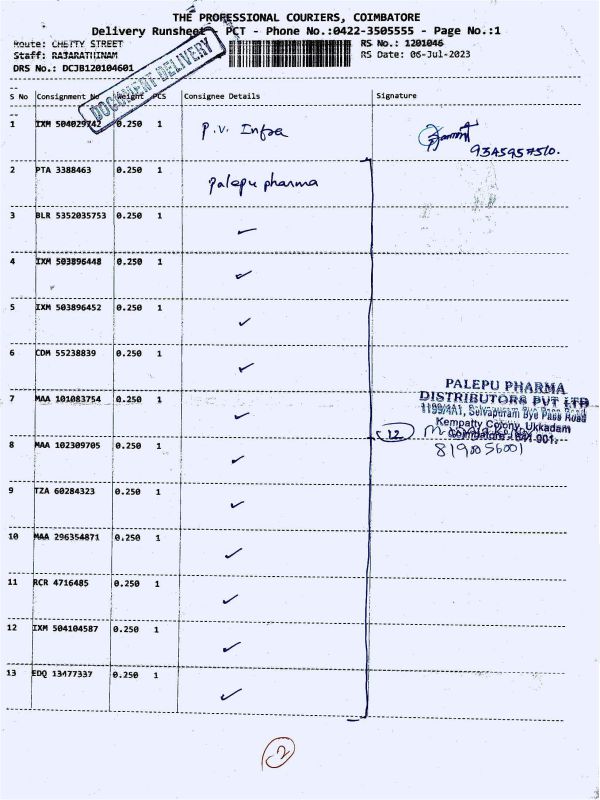 THE PROFESSIONAL COURIERS, COIMBATORE
Delivery Runsheet PCT - Phone No.:0422-3505555 - Page No.:1
Route: CHETTY STREET
RS No.: 1201046
Staff: RAJARATHINAM
RS Date: 06-Jul-2023
DRS No.: DCJB120104601
DOCUMENT DELIVERY
S No Consignment No Weight PCS Consignee Details Signature
1 IXM 504029742 0.250 1 P.V. Infra
9345957510.
2 PTA 3388463 0.250 1 palepu pharma
3 BLR 5352035753 0.250 1 ✓
4 IXM 503896448 0.250 1 ✓
5 IXM 503896452 0.250 1 ✓
6 CDM 55238839 0.250 1 ✓
7 MAA 101083754 0.250 1 ✓
PALEPU PHARMA
DISTRIBUTORS PVT LTD
1199/4A1, Selvapuram Bye Pass Road
Kempatty Colony, Ukkadam
Coimbatore - 641 001.
12
8190056001
8 MAA 102309705 0.250 1 ✓
9 TZA 60284323 0.250 1 ✓
10 MAA 296354871 0.250 1 ✓
11 RCR 4716485 0.250 1 ✓
12 IXM 504104587 0.250 1 ✓
13 EDQ 13477337 0.250 1 ✓
2